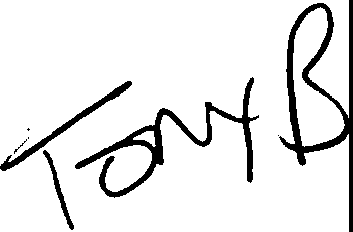 Tony B